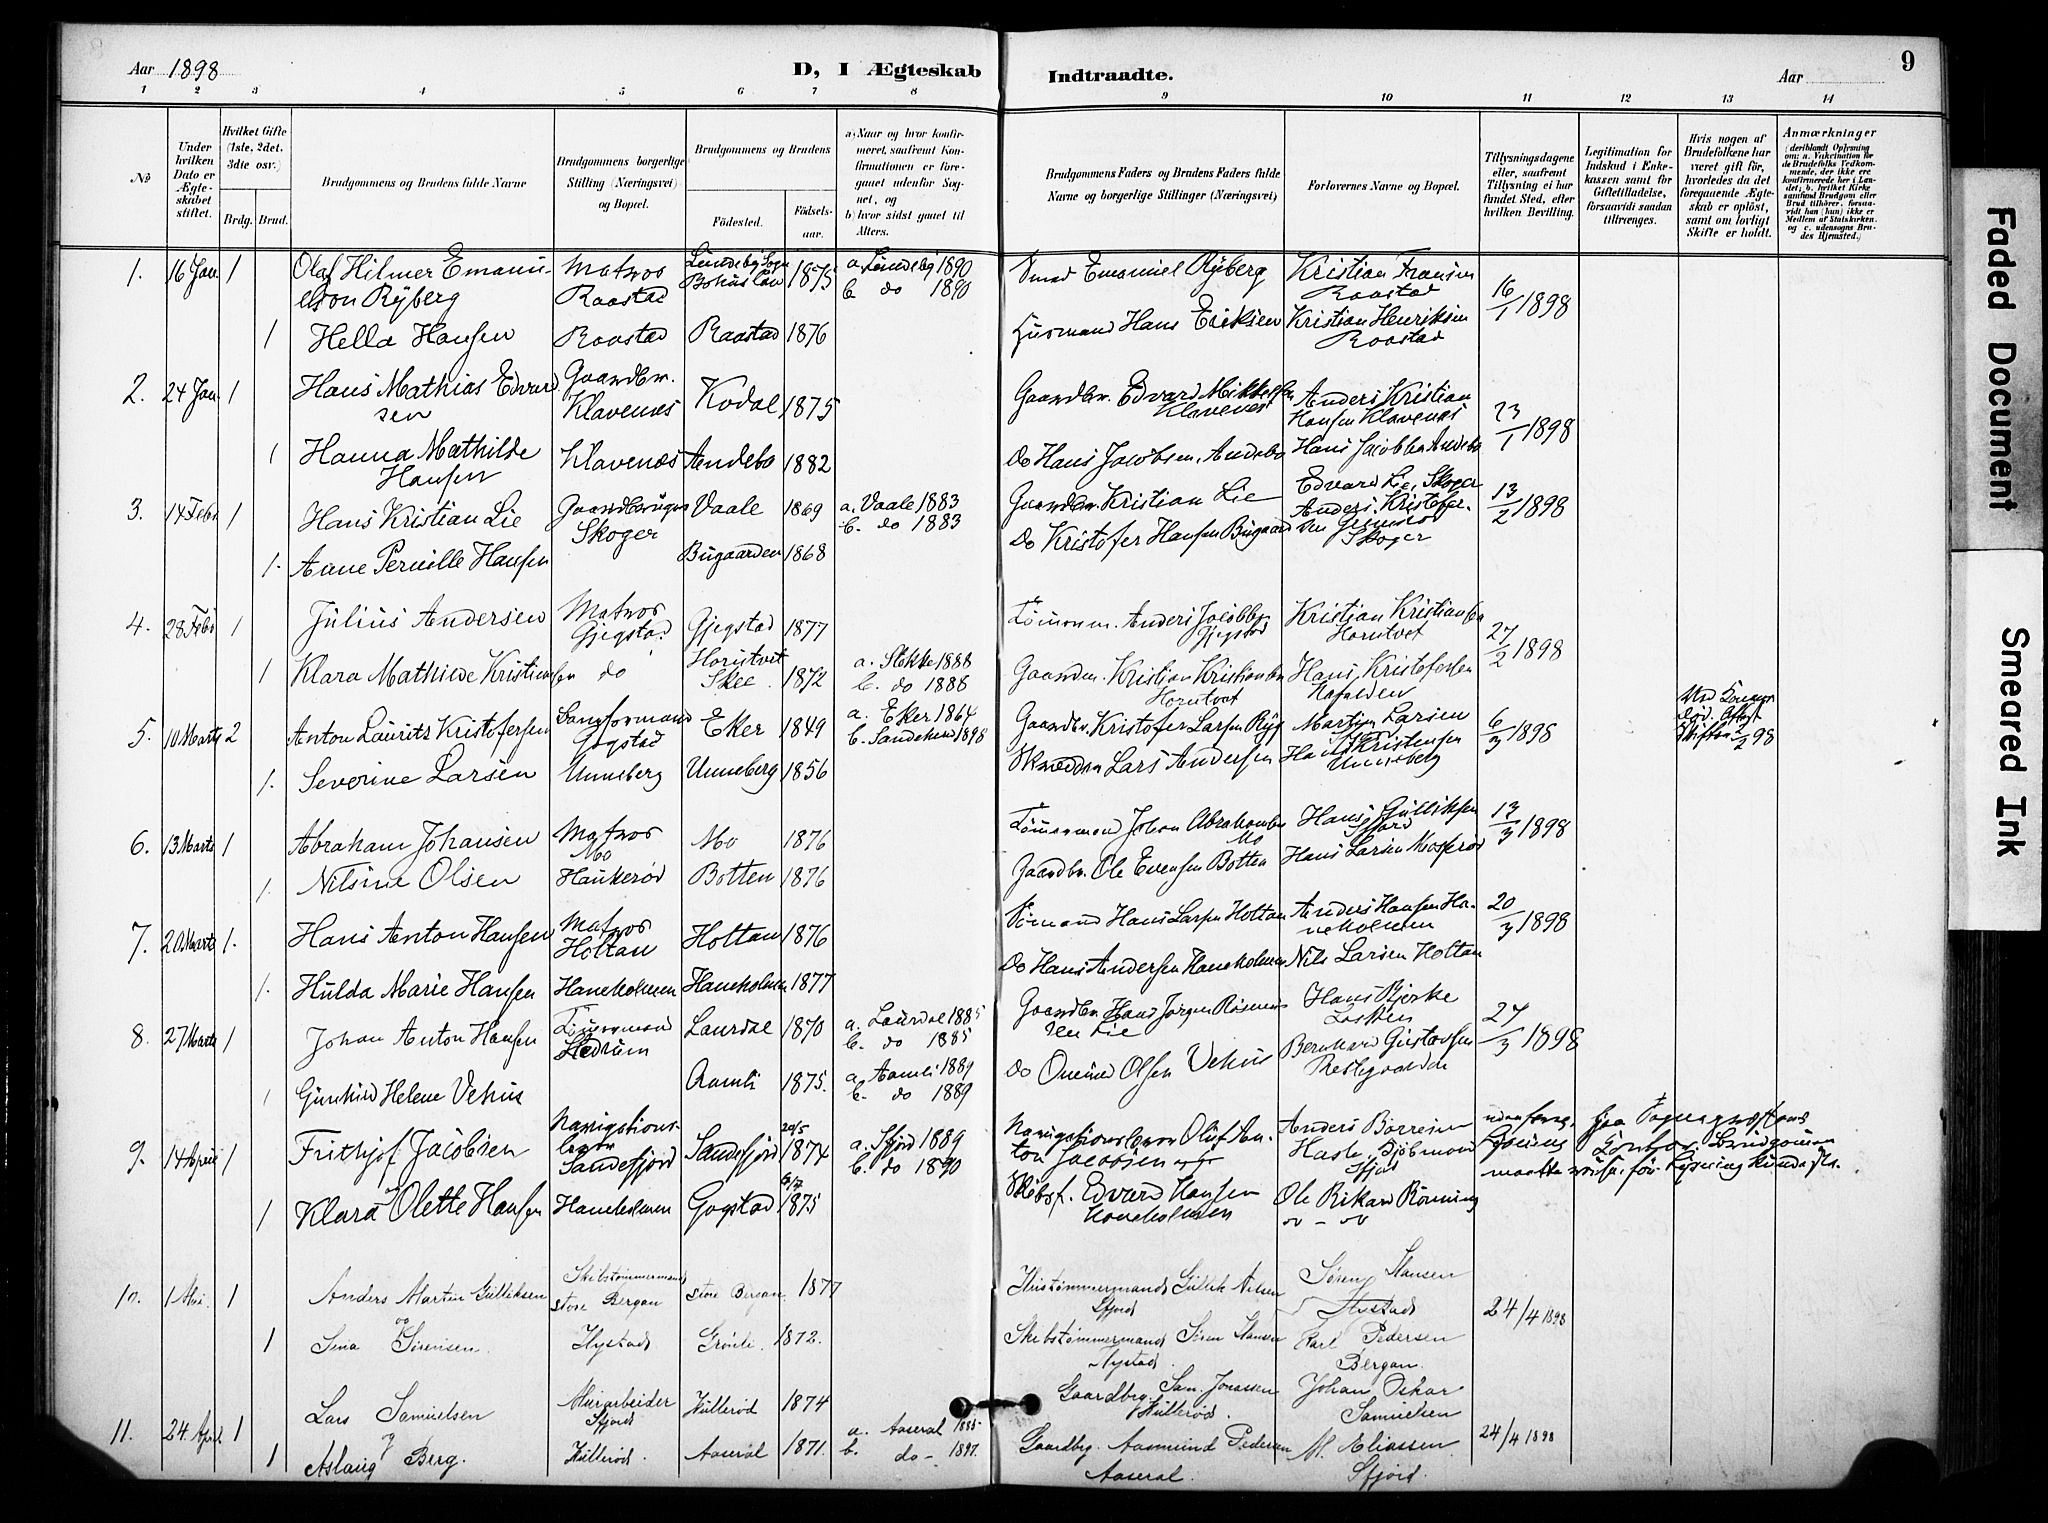 Aar 1898
D, I Ægteskab
Indtraadte.
Aar
9
1 2 3 4 5 6 7 8
9 10 11 12 13 14
No
Under hvilken Dato er Ægteskabet stiftet.
Hvilket Gifte (1ste, 2det, 3dte osv.)
Brdg. Brud.
Brudgommens og Brudens fulde Navne
Brudgommens borgerlige Stilling (Næringsvei) og Bopæl.
Brudgommens og Brudens
Fødested.
Fødselsaar.
a) Naar og hvor konfirmeret, saafremt Konfirmationen er foregaaet udenfor Sognet, og
b) hvor sidst gaaet til Alters.
Brudgommens Faders og Brudens Faders fulde Navne og borgerlige Stillinger (Næringsvei)
Forlovernes Navne og Bopæl.
Tillysningsdagene eller, saafremt Tillysning ei har fundet Sted, efter hvilken Bevilling.
Legitimation for Indskud i Enkekassen samt for Giftetilladelse, forsaavidt saadan tiltrænges.
Hvis nogen af Brudefolkene har været gift før, hvorledes da det foregaaende Ægteskab er opløst, samt om lovligt Skifte er holdt.
Anmærkninger
(deriblandt Oplysning om: a. Vakcination for de Brudefolks Vedkommende, der ikke ere konfirmerede her i Landet; b. hvilket Kirkesamfund Brudgom eller Brud tilhører, forsaavidt han (hun) ikke er Medlem af Statskirken, og c. udensogns Brudes Hjemsted.)
1. 16 Jan. 1 Olaf Hilmer Emanuelson Ryberg Matros Raastad Lundeby Sogn Bohus Län 1875 a. Lundeby 1890 b. do 1890 Smed Emanuel Ryberg Kristian Fransen Raastad 16/1 1898
1 Hella Hansen Raastad Raastad 1876 Husmand Hans Eriksen Kristian Henriksen Raastad
2. 24 Jan. 1 Hans Mathias Edvardsen Gaardbr. Klavenæs Kodal 1875 Gaardbr. Edvard Mikkelsen Klavenæs Anders Kristian Hansen Klavenæs 23/1 1898
1 Hanna Mathilde Hansen Klavenæs Andebo 1882 Do Hans Jacobsen, Andebo Hans Jacobsen Andebo
3. 14 Febr 1 Hans Kristian Lie Gaardbruger Skoger Vaale 1869 a. Vaale 1883 b. do 1883 Gaardbr. Kristian Lie Edvard Lie, Skoger 13/2 1898
1. Anne Pernille Hansen Bugaarden 1868 Do Kristofer Hansen Bugaard Anders Kristofersen Skoger
4. 28 Febr 1 Julius Andersen Matros Gjegstad Gjegstad 1877 Tømmerm. Anders Jacobsen Gjegstad Kristian Kristiansen Horntvet 27/2 1898
1 Klara Mathilde Kristiansen do Horntvet Skee 1872 a. Stokke 1888 b. do 1888 Gaardm. Kristian Kristiansen Horntvet Hans Kristofersen
5. 10 Marts 2 Anton Laurits Kristofersen Gogstad Eker 1849 a. Eker 1864 b. Sandeherred 1898 Gaardbr. Kristofer Larsen Martin Larsen 6/3 1898 98
1. Severine Larsen Unneberg Unneberg 1856 Lars Andersen Hans Kristensen Unneberg
6. 13 Marts 1 Abraham Johansen Matros Mo Mo 1876 Tømmermand Johan Abrahamsen Mo Hans Gulliksen Sfjord 13/3 1898
1. Nilsine Olsen Haukerød Botten 1876 Gaardbr. Ole Evensen Botten Hans Larsen Moserød
7. 20 Marts 1. Hans Anton Hansen Matros Holtan Holtan 1876 Sømand Hans Larsen Holtan Anders Hansen Haneholmen 20/3 1898
1. Hulda Marie Hansen Haneholmen Haneholmen 1877 Do Hans Andersen Haneholmen Nils Larsen Holtan
8. 27 Marts 1 Johan Anton Hansen Tømmermand Hedrum Laurdal 1870 a. Laurdal 1885 b. do 1885 Gaardbr. Hans Jørgen Lie Hans Bjerke 27/3 1898
1 Gunhild Helene Vehus Aamli 1875. a. Aamli 1889 b. do 1889 Do Olsen Vehus Bernhard Gustavsen
9. 14 April 1 Frithjof Jacobsen Navigationslærer Sandefjord Sandefjord 20/5 1874 a. Sfjord 1889 b. do 1890 Navigationslærer Oluf Anton Jacobsen Anders Borresen Sfjord
1 Klara Olette Hansen Haneholmen Gogstad 1875 Skibsf. Edvard Hansen Haneholmen Ole Rikard Rønning
10. 1 Mai. 1 Anders Martin Gulliksen Skibstømmermand store Bergan store Bergan 1877 Gullik Sfjord Søren Hansen Hystad 24/4 1898
og
1 Sina Sørensen. Hystad Grønli. 1872. Skibstømmermand Søren Hansen Hystad. Karl Pedersen Bergan.
11. 24. April 1 Lars Samuelsen Murarbeider Sfjord Hullerød 1874 Gaardbrg. Sam. Jonassen Hullerød. Johan Oskar Samuelsen
1 Aslaug Berg. Hullerød. Aaseral 1871. a. Aaseral 1885 b. do - 1897. Gaardbrg. Aasmund Pedersen Aaseral. M. Eliassen Sfjord 24/4 1898
Faded Document
Smeared Ink